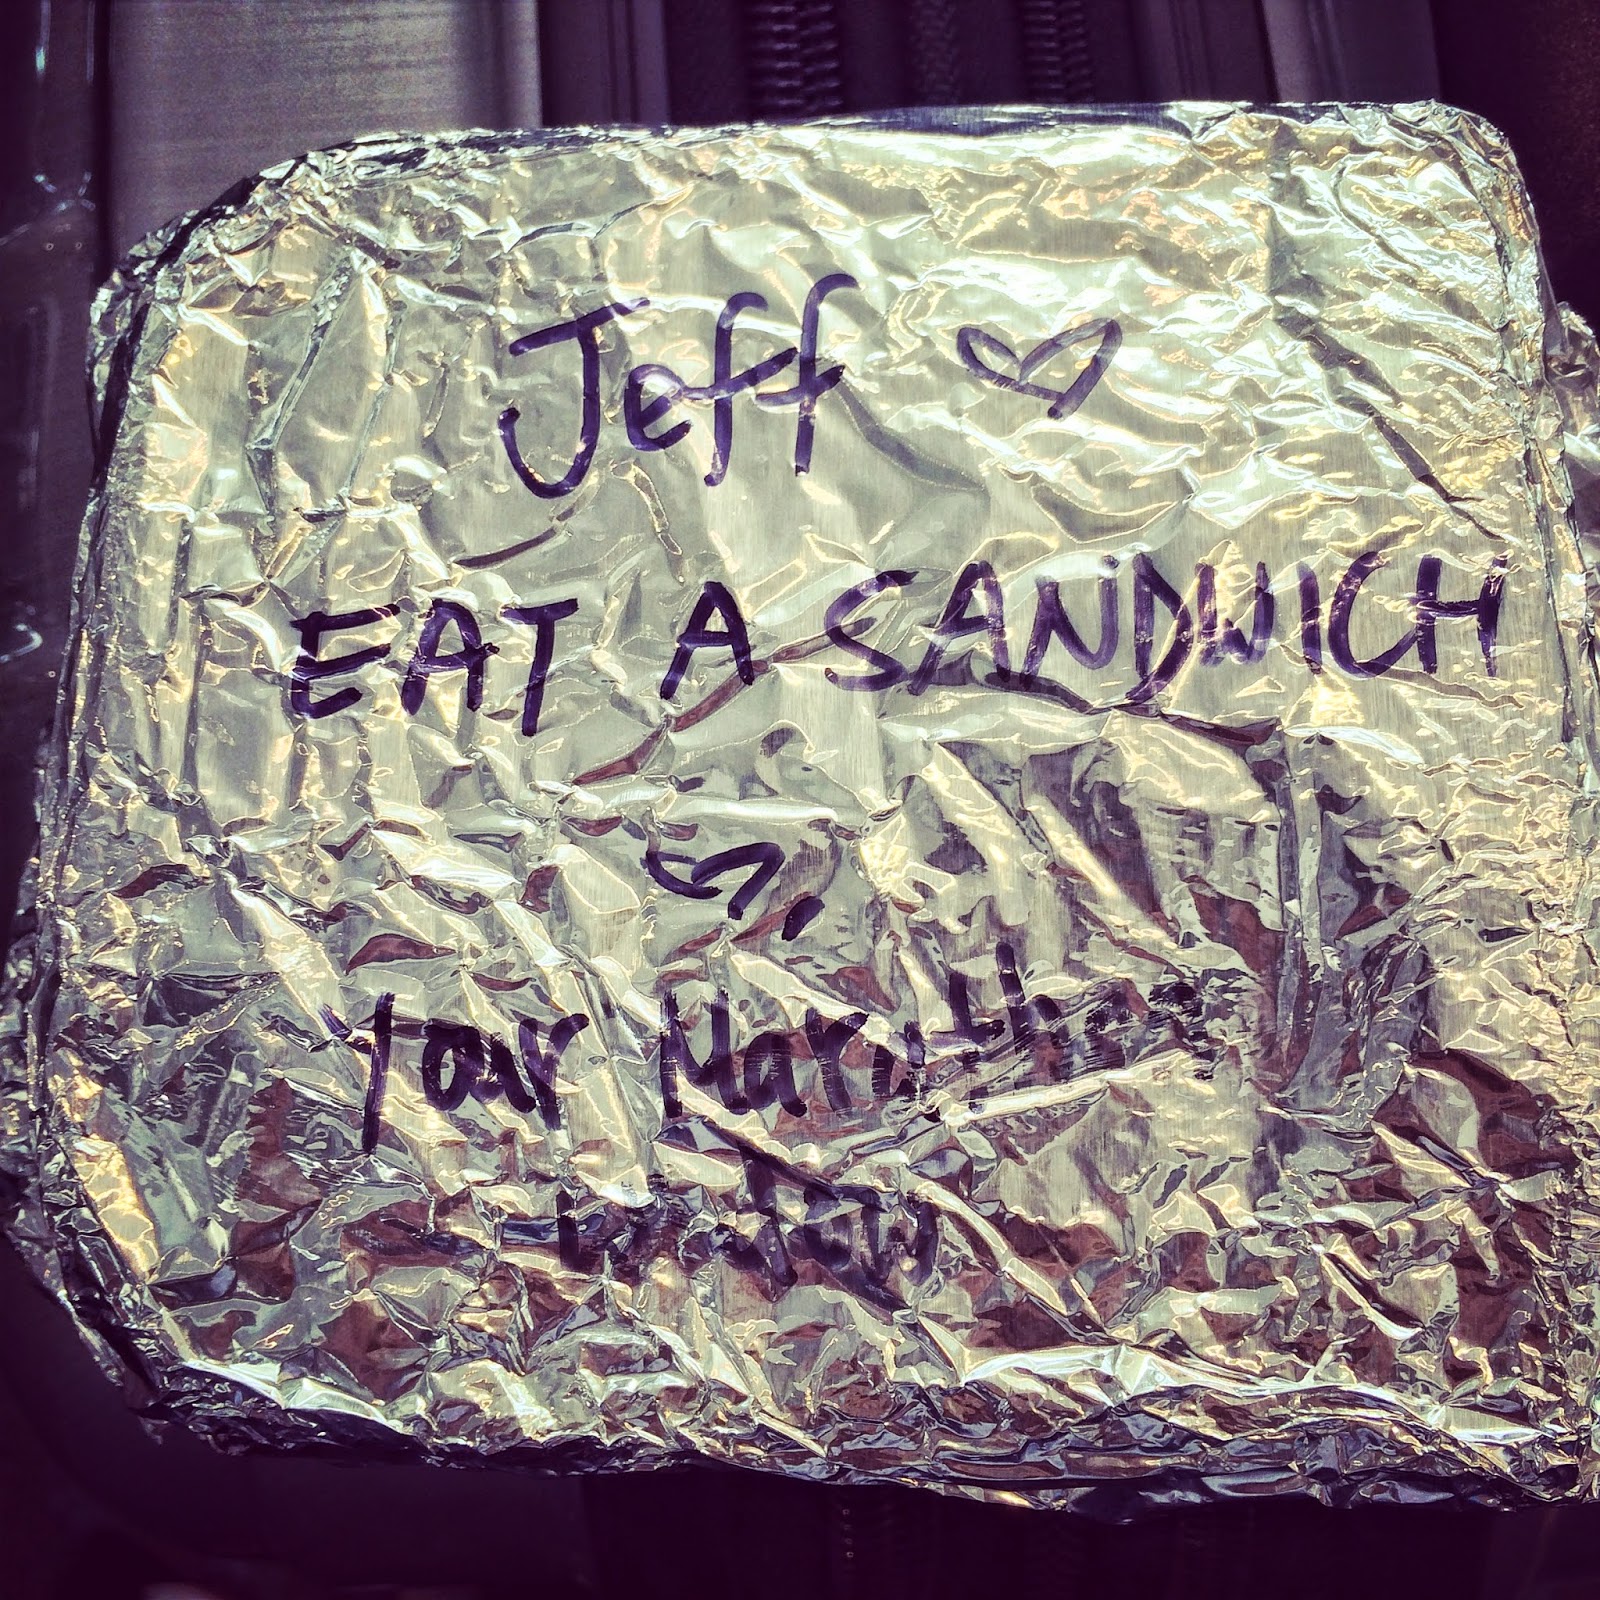 Jeff ♡
EAT A SANDWICH
♡,
Your Marathon